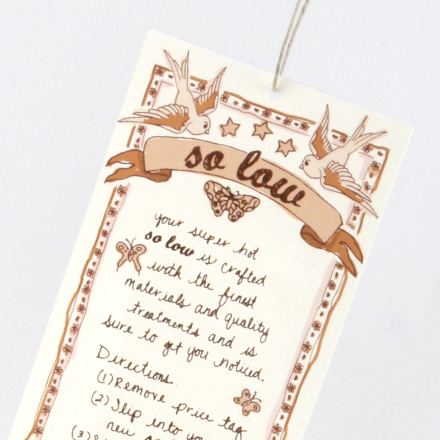 so low
your super hot
so low is crafted
with the finest
materials and quality
treatments and is
sure to get you noticed.
Directions:
(1) Remove price tag
(2) Slip into your
new
(3)